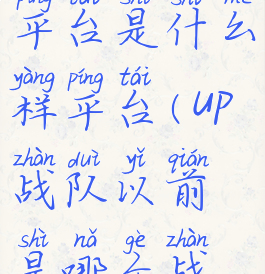 píng tái shì shí me
平台是什么
yàng píng tái
样平台(UP
zhàn duì yǐ qián
战队以前
shì nǎ gè zhàn
是哪个战